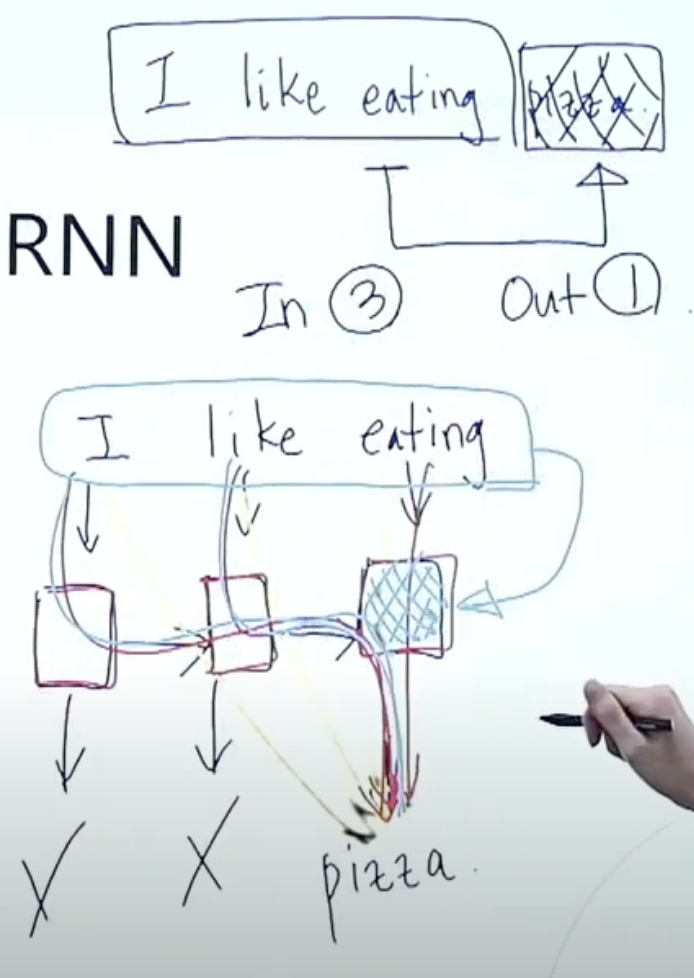 I like eating pizza.
RNN
In 3 Out 1
I like eating
X X pizza.